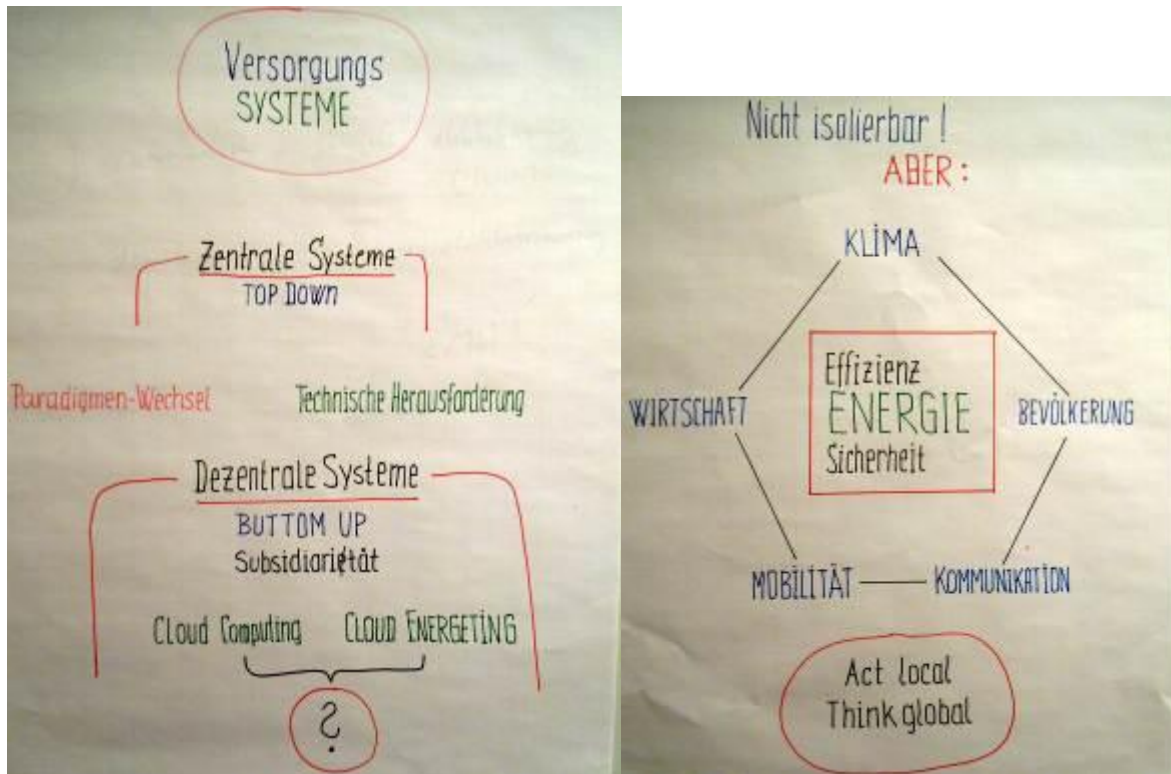 Versorgungs
SYSTEME
Zentrale Systeme
TOP DOWN
Paradigmen-Wechsel
Technische Herausforderung
Dezentrale Systeme
BUTTOM UP
Subsidiarität
Cloud Computing
CLOUD ENERGETING
?
Nicht isolierbar!
ABER:
KLIMA
WIRTSCHAFT
Effizienz
ENERGIE
Sicherheit
BEVÖLKERUNG
MOBILITÄT
KOMMUNIKATION
Act local
Think global